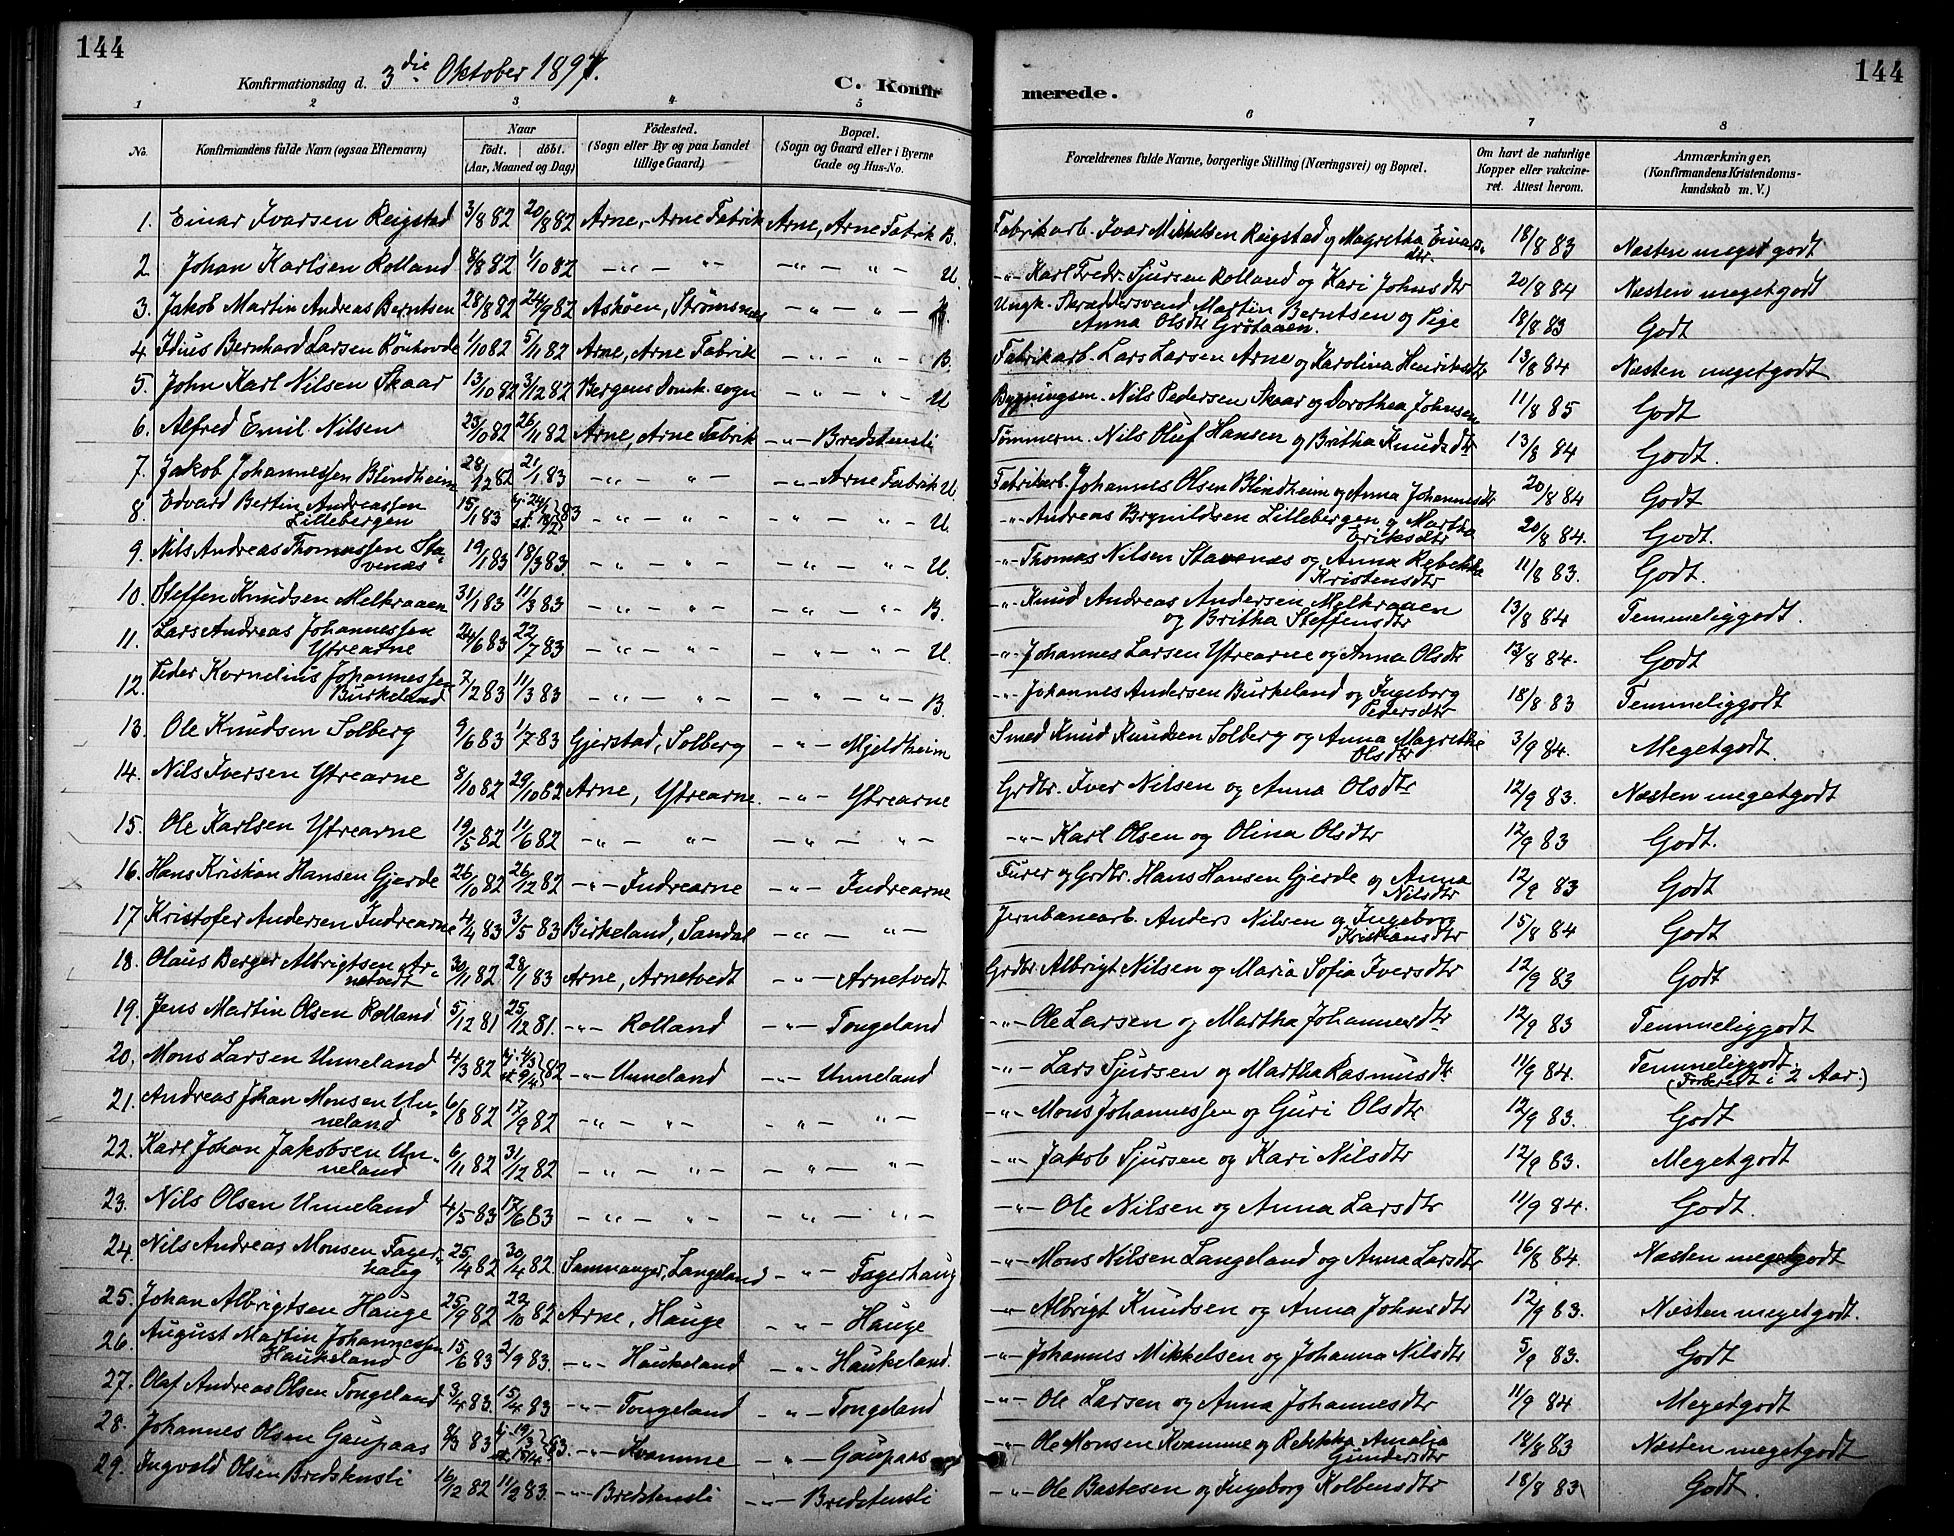 144
Konfirmationsdag d. 3die Oktober 1897.
C. Konfirmerede.
144
1 2 3 4 5 6 7 8
No. Konfirmandens fulde Navn (ogsaa Efternavn) Naar födt. döbt. (Aar, Maaned og Dag) Födested. (Sogn eller By og paa Landet tillige Gaard) Bopæl. (Sogn og Gaard eller i Byerne Gade og Hus-No. Forældrenes fulde Navne, borgerlige Stilling (Næringsvei) og Bopæl. Om havt de naturlige Kopper eller vakcineret. Attest herom. Anmærkninger, (Konfirmandens Kristendomskundskab m. V.)
1. Einar Ivarsen Reigstad 3/8 82 20/8 82 Arne, Arne Fabrik Arne, Arne Fabrik B. Fabrikarb. Ivar Mikkelsen Reigstad og Magretha Einarsdtr. 18/8 83 Næsten meget godt
2 Johan Karlsen Rolland 8/8 82 1/10 82 -"- "- -"- "- U. -"- Karl Fredr. Sjursen Rolland og Kari Johnsdtr 20/8 84 Næsten megetgodt
3. Jakob Martin Andreas Berntsen 28/8 82 24/9 82 Askøen, Strømsnes -"- "- B. Ungk. Skræddersvend Martin Berntsen og Pige Anna Olsdtr 18/8 83 Godt
4 Idius Bernhard Larsen 1/10 82 5/11 82 Arne, Arne Fabrik -"- "- B. Fabrikarb. Lars Larsen Arne og Karolina Henriksdtr 13/8 84 Næsten megetgodt
5. John Karl Nilsen Skaar 13/10 82 3/12 82 Bergens Domk. sogn -"- "- U Bygningsm. Nils Pedersen Skaar og Dorothea Johnsen 11/8 85 Godt
6. Alfred Emil Nilsen 23/10 82 26/11 82 Arne, Arne Fabrik -"- Bredstensli Tømmerm. Nils Oluf Hansen og Britha Knudsdtr 13/8 84 Godt.
7. Jakob Johannessen Blindheim 28/12 82 21/1 83 -"- "- -"- Arne Fabrik U. Fabrikarb. Johannes Olsen Blindheim og Anna Johannesdtr 20/8 84 Godt
8. Edvard Bertin Andreassen Lillebergen 15/1 83 hj. 24/1 st. 18/2 } 83 -"- "- -"- "- U. -"- Andreas Brynildsen Lillebergen og Martha Eriksdtr 20/8 84. Godt.
9. Nils Andreas Thomassen Stavenæs 19/1 83 18/3 83. -"- "- -"- "- U. -"- Thomas Nilsen Stavenæs og Anna Rebekka Kristensdtr 11/8 83. Godt.
10. Steffen Knudsen Melkraaen 31/1 83 11/3 83 -"- "- -"- "- B. -"- Knud Andreas Andersen Melkraaen og Britha Steffensdtr 13/8 84 Temmeliggodt.
11. Lars Andreas Johannessen Ytrearne 24/6 83 22/7 83 -"- "- -"- "- U. -"- Johannes Larsen Ytrearne og Anna Olsdtr 13/8 84. Godt
12. Peder Kornelius Johannessen Burkeland 7/2 83 11/3 83 -"- "- -"- "- B. -"- Johannes Andersen Burkeland og Ingeborg Pedersdtr 18/8 83 Temmeliggodt
13. Ole Knudsen Solberg 9/6 83 1/7 83 Gjerstad, Solberg -"- Mjeldheim Smed Knud Knudsen Solberg og Anna Magrethe Olsdtr 3/9 84. Megetgodt.
14. Nils Iversen Ytrearne 8/10 82 29/10 82 Arne, Ytrearne. -"- Ytrearne Grdbr. Iver Nilsen og Anna Olsdtr 12/9 83. Næsten megetgodt
15. Ole Karlsen Ytrearne 19/5 82 11/6 82 -"- "- -"- "- -"- Karl Olsen og Olina Olsdtr 12/9 83 Godt.
16. Hans Kristian Hansen Gjerde 26/10 82 26/12 82 -"- Indrearne -"- Indrearne Furer og Grdbr. Hans Hansen Gjerde og Anna Nilsdtr 12/9 83 Godt
17 Kristofer Andersen Indrearne 4/4 83 3/5 83 Birkeland, Sandal -"- "- Jernbanearb. Anders Nilsen og Ingeborg Kristiansdtr 15/8 84 Godt
18. Olaus Berger Albrigtsen Arnetvedt 30/11 82 28/1 83 Arne, Arnetvedt -"- Arnetvedt Grdbr. Albrigt Nilsen og Maria Sofia Iversdtr 12/9 83 Godt
19. Jens Martin Olsen Rolland 5/12 81 25/12 81. -"- Rolland -"- Tongeland -"- Ole Larsen og Martha Johannesdtr 12/9 83 Temmeliggodt
20. Mons Larsen Unneland 4/3 82 hj. 4/3 st. 9/4 } 82 -"- Unneland -"- Unneland -"- Lars Sjursen og Martha Rasmusdtr 11/9 84. Temmeliggodt. (Forberedt i 2 Aar.)
21. Andreas Johan Monsen Unneland 6/8 82 17/9 82 -"- "- -"- "- -"- Mons Johannessen og Guri Olsdtr 12/9 83. Godt
22. Karl Johan Jakobsen Unneland 6/11 82 31/12 82 -"- "- -"- "- -"- Jakob Sjursen og Kari Nilsdtr 12/9 83. Megetgodt
23. Nils Olsen Unneland 4/5 83 17/6 83 -"- "- -"- "- -"- Ole Nilsen og Anna Larsdtr 11/9 84. Godt.
24. Nils Andreas Monsen Fagerhaug 25/4 82 30/4 82. Samnanger, Langeland -"- Fagerhaug -"- Mons Nilsen Langeland og Anna Larsdtr 16/8 84 Næsten megetgodt
25. Johan Albrigtsen Hauge 25/9 82 22/10 82 Arne, Hauge -"- Hauge -"- Albrigt Knudsen og Anna Johnsdtr 12/9 83. Næsten megetgodt.
26. August Martin Johannessen Haukeland 15/6 83 2/9 83. -"- Haukeland -"- Haukeland. -"- Johannes Mikkelsen og Johanna Nilsdtr 5/9 83. Godt
27. Olaf Andreas Olsen Tongeland 3/4 83. 15/4 83 -"- Tongeland -"- Tongeland -"- Ole Larsen og Anna Johannesdtr 11/9 84 Megetgodt
28. Johannes Olsen Gaupaas 8/3 83 hj. 19/3 st. 15/4 } 83. -"- Kvamme -"- Gaupaas -"- Ole Monsen Kvamme og Rebekka Amalia Gundersdtr 12/8 83 Næsten megetgodt
29. Ingvald Olsen Bredstensli 16/12 82 11/2 83. -"- Bredstensli -"- Bredstensli -"- Ole Bastesen og Ingeborg Kolbensdtr 18/8 83 Godt.